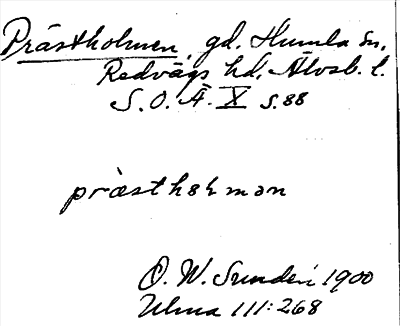 Prästholmen, gd. Humla sn,
Redvägs hd, Älvsb. l.
S.O.Ä. X s. 88
præsthɷɫmən
O. W. Sundén 1900
Ulma 111:268